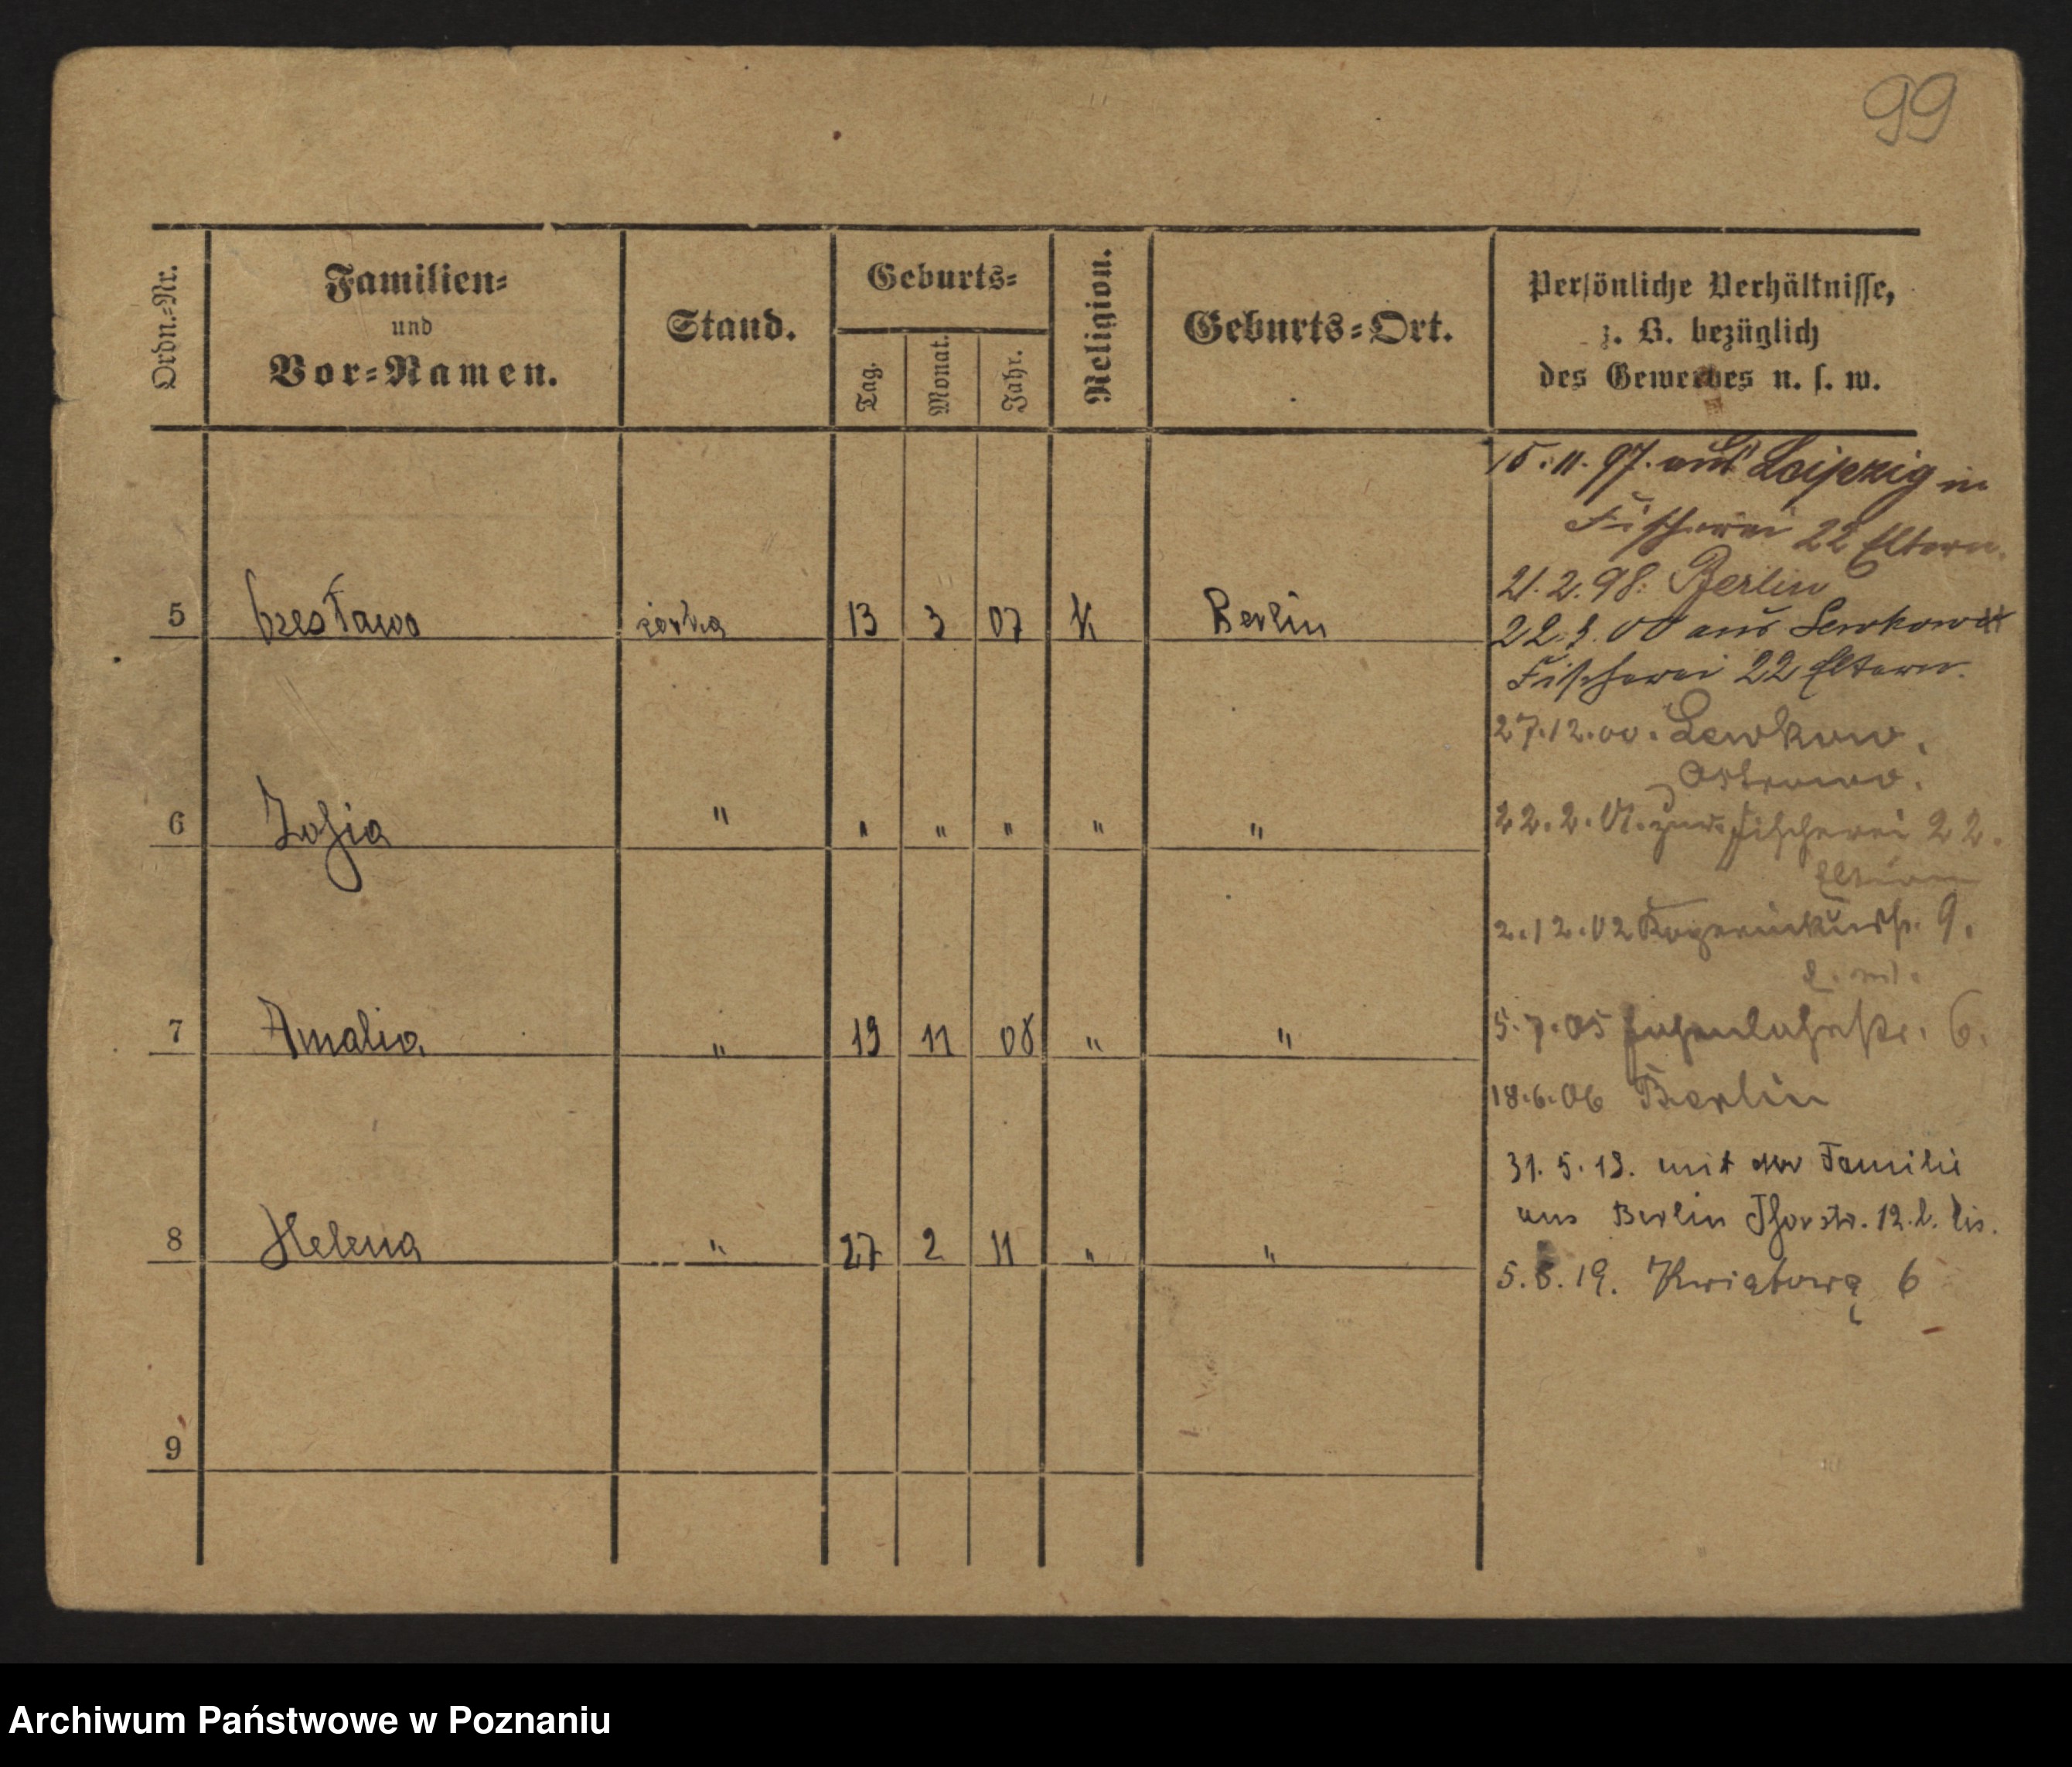 99
Ordn.-Nr.
Familien-
und
Vor-Namen.
Stand.
Geburts-
Tag.
Monat.
Jahr.
Religion.
Geburts-Ort.
Persönliche Verhältnisse,
z. B. bezüglich
des Gewerbes u. s. w.
5 Czesława córka 13 3 07 K Berlin
6 Zofia " " " " " "
7 Amalia " 19 11 08 " "
8 Helena " 27 2 11 " "
9
15.11.97. aus Leipzig in
Fischerei 22 Eltern.
21.2.98. Berlin
22.3.00 aus Lewkow
Fischerei 22 Eltern.
27.12.00. Lewkow,
Ostrowo.
22.2.01. zur. Fischerei 22.
Eltern
2.12.02 9.
5.7.05 6.
18.6.06 Berlin
31.5.19. mit der Familie
aus Berlin Thorstr. 12.
5.8.19. Kwiatowa 6
Archiwum Państwowe w Poznaniu